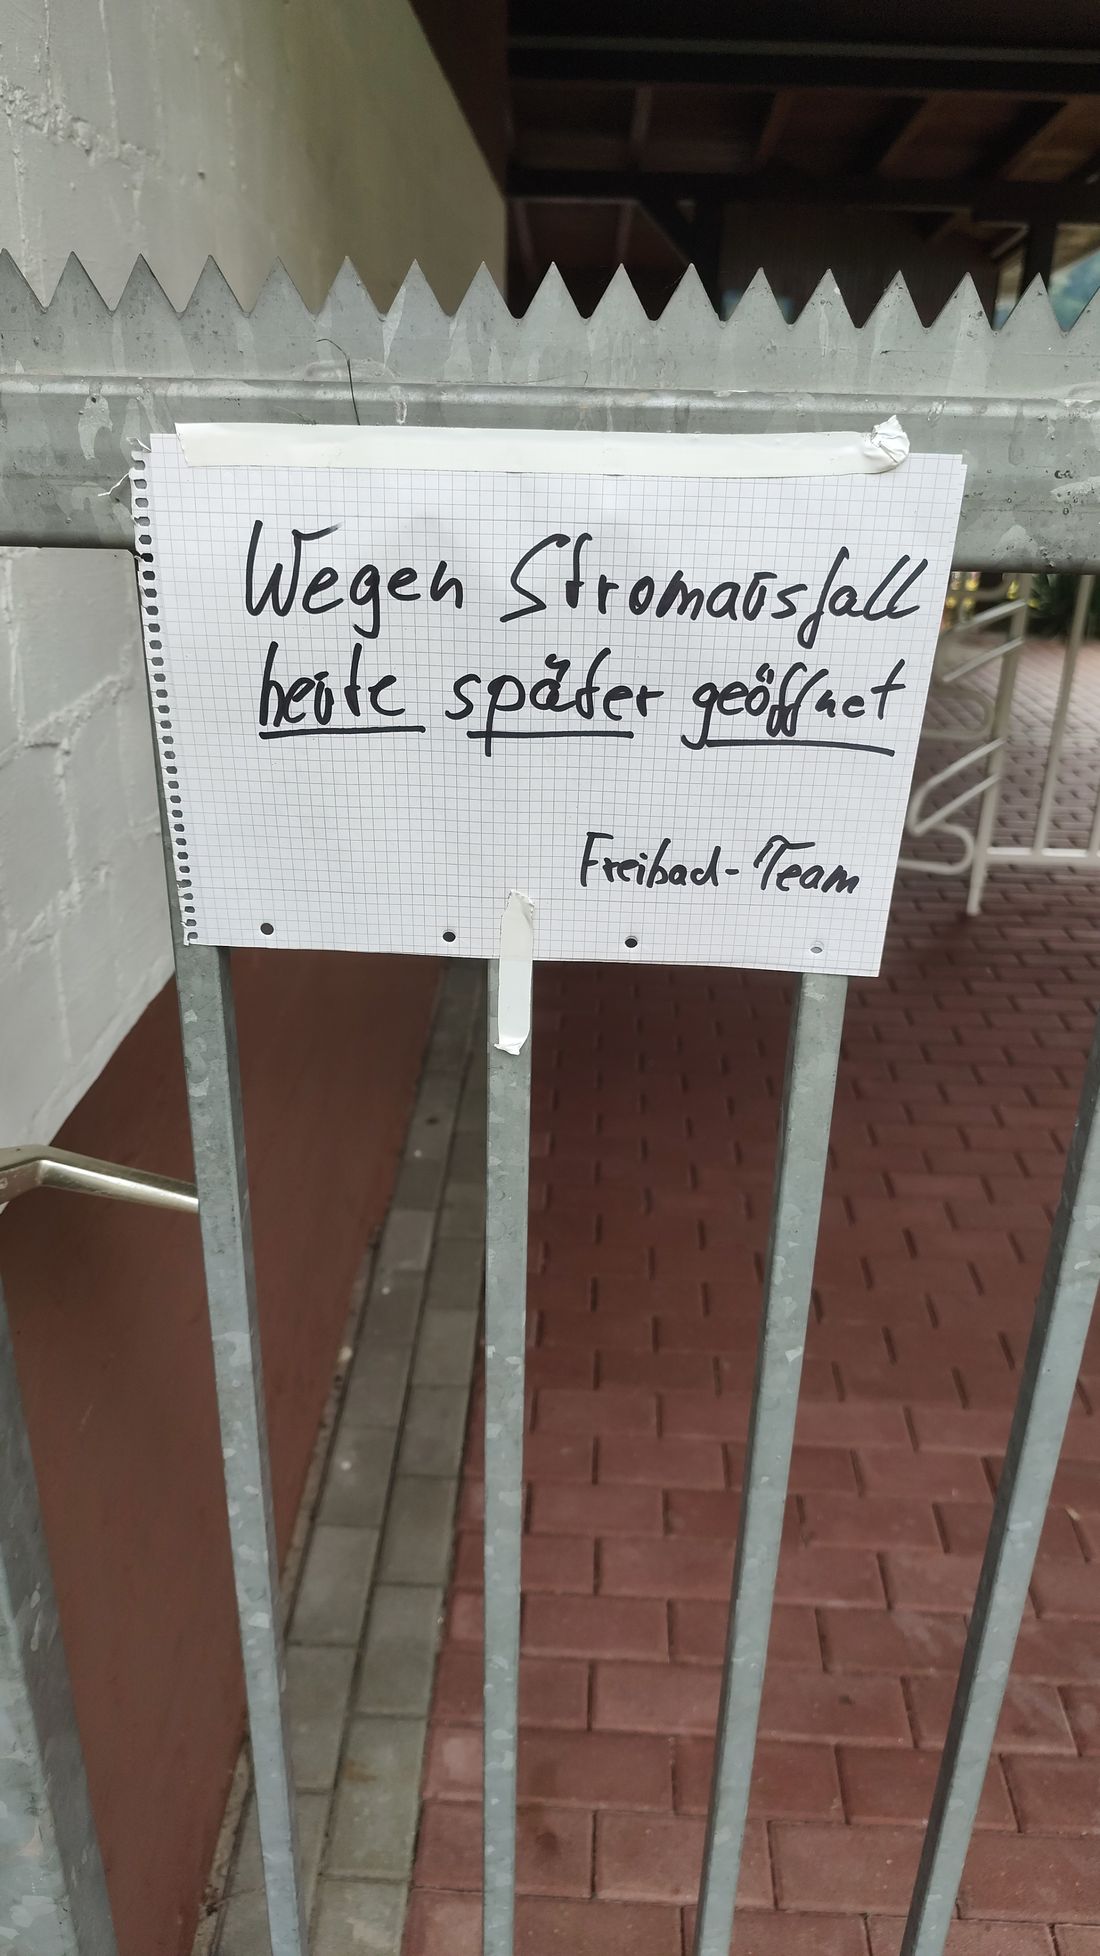 Wegen Stromausfall
heute später geöffnet
Freibad-Team